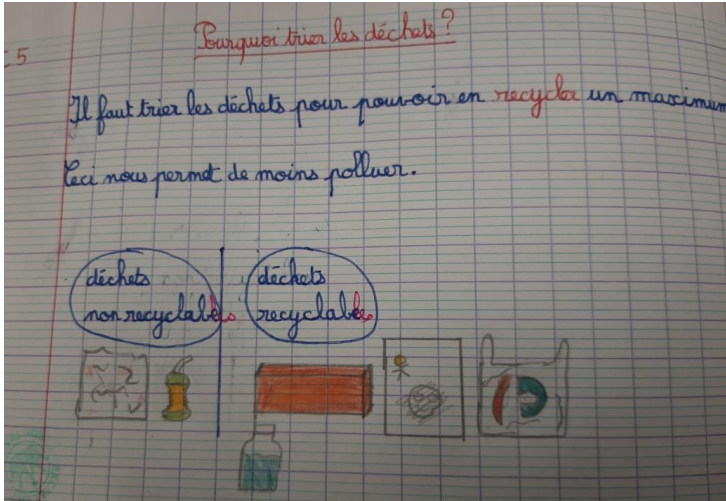 Pourquoi trier les déchets ?
5
Il faut trier les déchets pour pouvoir en recycler un maximum
Ceci nous permet de moins polluer.
déchets
non recyclables
déchets
recyclables